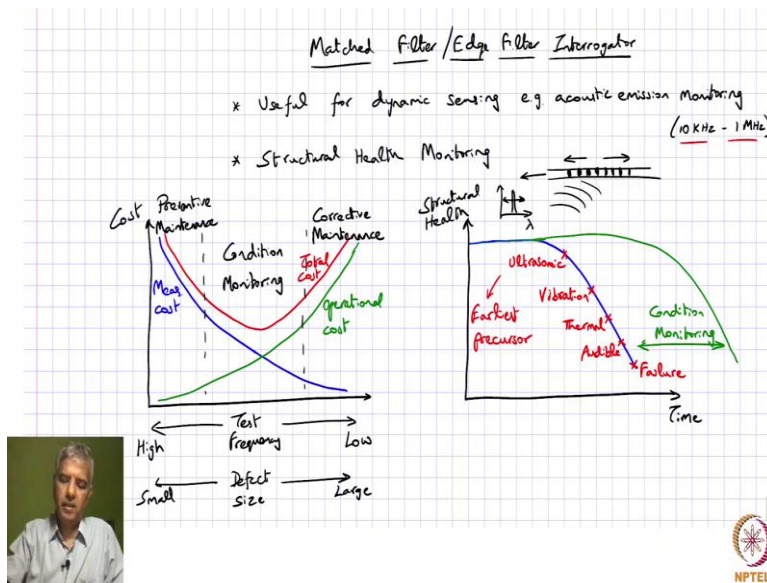 Matched Filter / Edge Filter Interrogator
* Useful for dynamic sensing e.g. acoustic emission monitoring
(10 KHz - 1 MHz)
* Structural Health Monitoring
Cost
Preventive
Maintenance
Condition
Monitoring
Corrective
Maintenance
Total
cost
Meas
cost
Operational
cost
High
Test
Frequency
Low
Small
Defect
size
Large
Structural
Health
λ
Ultrasonic
Vibration
Thermal
Audible
Failure
Earliest
precursor
Condition
Monitoring
Time
NPTEL